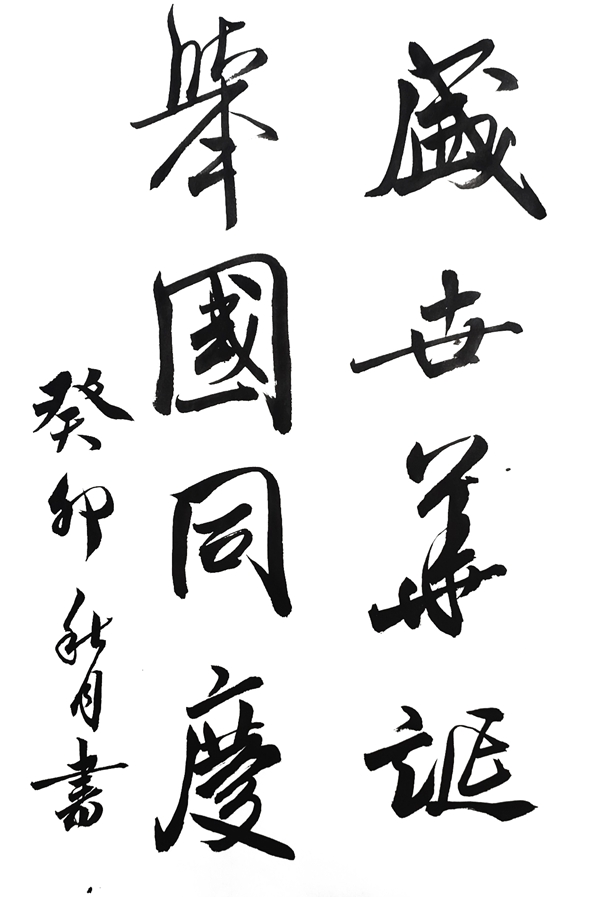 盛世華誕
舉國同慶
癸卯秋月書